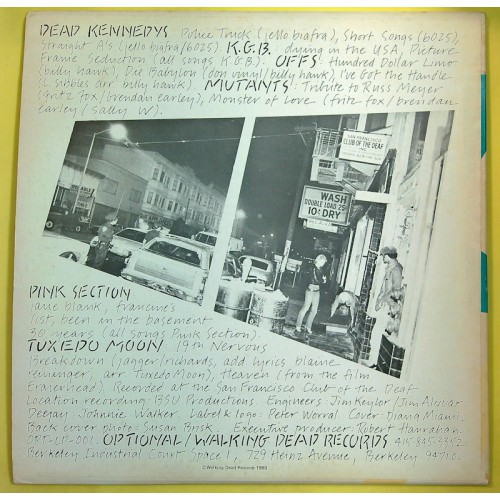 DEAD KENNEDYS Police Truck (jello biafra), Short Songs (6025),
Straight A's (jello biafra/6025). K.G.B. dying in the USA, Picture
Frame Seduction (all songs K.G.B.). OFFS: Hundred Dollar Limo
(billy hawk), Die Babylon (don vinyl/billy hawk), I've Got the Handle
(L. Sibbles arr. billy hawk). MUTANTS: Tribute to Russ Meyer
(fritz fox/brendan earley), Monster of Love (fritz fox/brendan
earley/Sally W).
SAN FRANCISCO
CLUB OF THE DEAF
INC.
WASH
DOUBLE LOAD 25¢
10¢ DRY
PINK SECTION
jane blank, francine's
list, been in the basement
30 years (all songs Pink Section).
TUXEDO MOON 19th Nervous
Breakdown (jagger/richards, add. lyrics blaine
reininger, arr. Tuxedo Moon), Heaven (from the film
Eraserhead). Recorded at the San Francisco Club of the Deaf
Location recording: BSU Productions. Engineers: Jim Keylor/Jim
Deejay: Johnnie Walker. Label & logo: Peter Worral Cover: Diana Miami.
Back cover photo: Susan Brisk. Executive producer: Robert Hanrahan.
OPT-LP-001. OPTIONAL/WALKING DEAD RECORDS 415·845·9352
Berkeley Industrial Court Space 1, 729 Heinz Avenue, Berkeley 94710.
©Walking Dead Records 1980